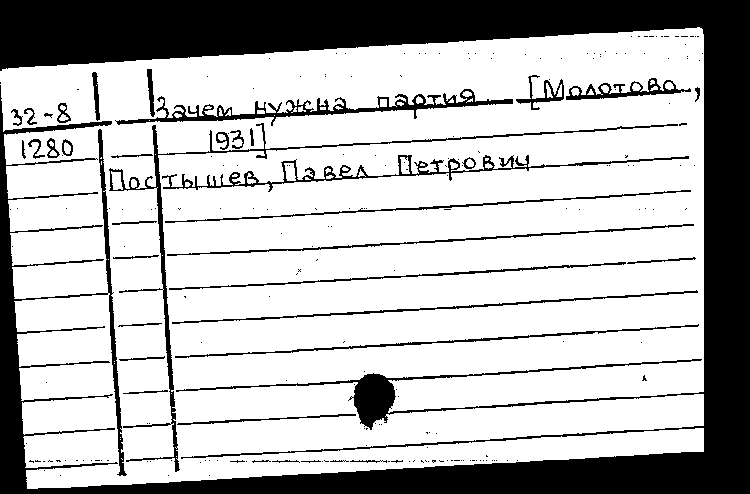 32-8 Зачем нужна партия [Молотово,
1280 1931]
Постышев, Павел Петрович